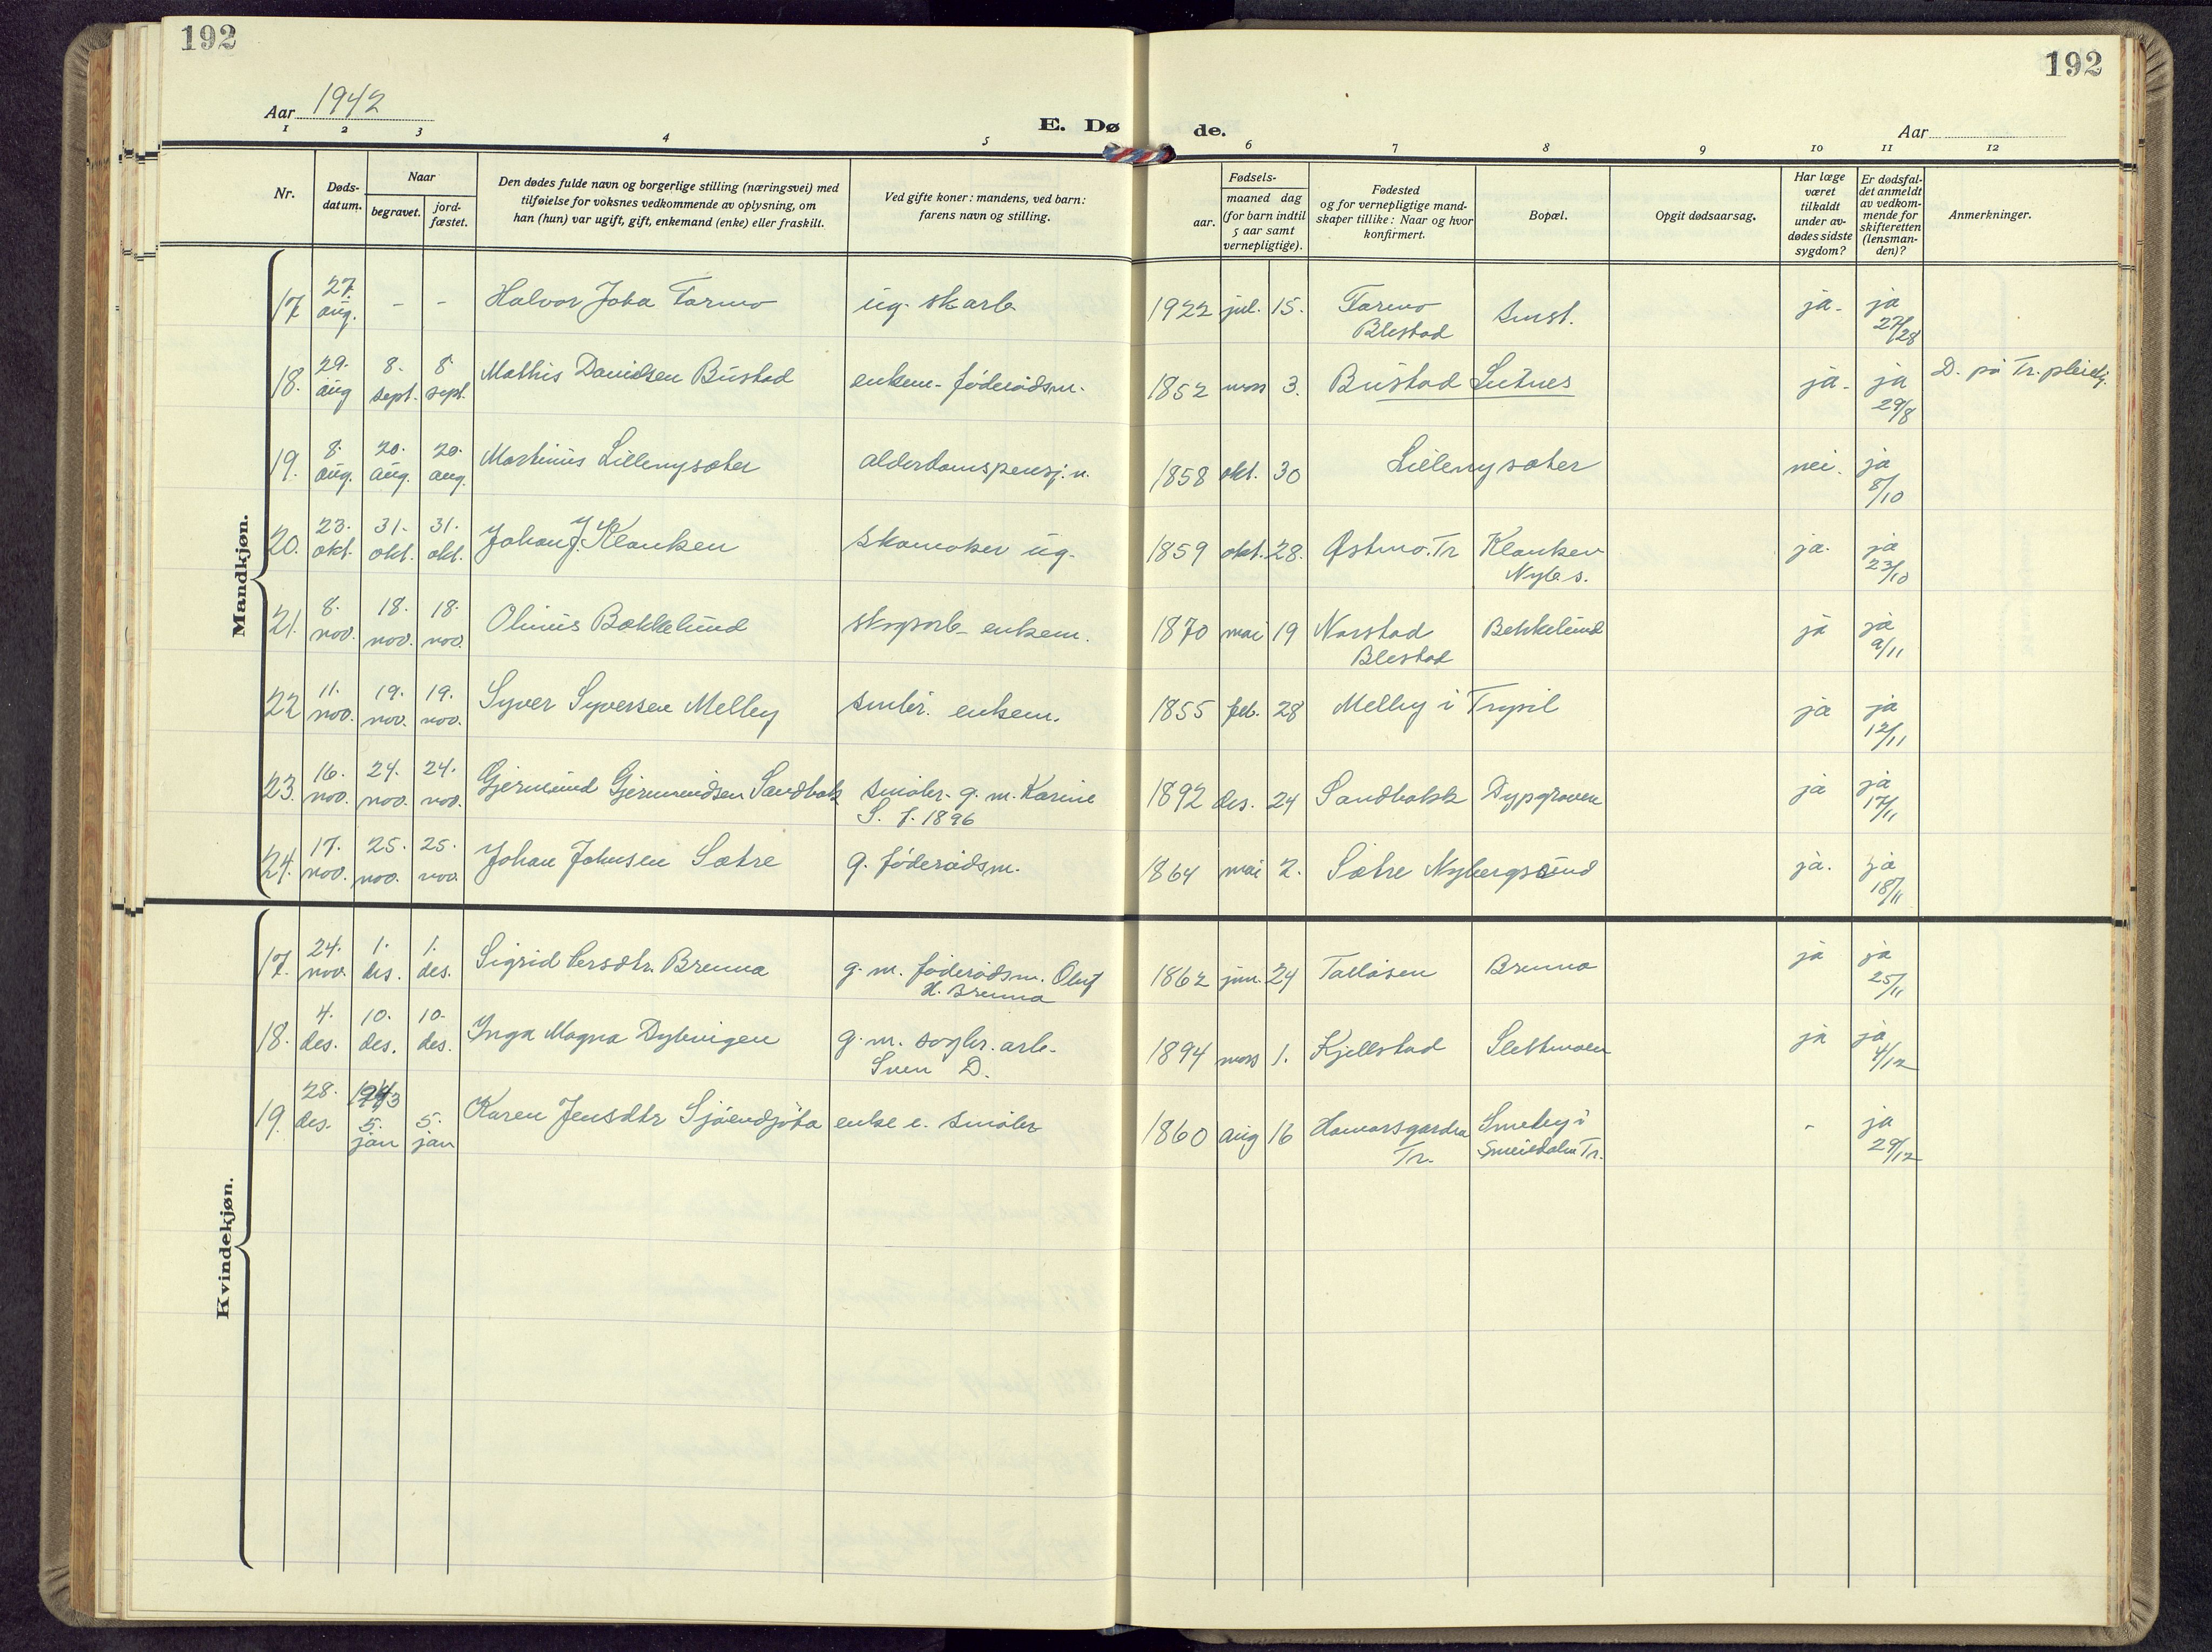 192
192
Aar 1942
E. Dø
de.
Aar
1 2 3 4 5 6 7 8 9 10 11 12
Nr.
Døds-
datum.
Naar
begravet.
jord-
fæstet.
Den dødes fulde navn og borgerlige stilling (næringsvei) med
tilføielse for voksnes vedkommende av oplysning, om
han (hun) var ugift, gift, enkemand (enke) eller fraskilt.
Ved gifte koner: mandens, ved barn:
farens navn og stilling.
Fødsels-
aar.
maaned dag
(for barn indtil
5 aar samt
vernepligtige).
Fødested
og for vernepligtige mand-
skaper tillike: Naar og hvor
konfirmert.
Bopæl.
Opgit dødsaarsag.
Har læge
været
tilkaldt
under av-
dødes sidste
sygdom?
Er dødsfal-
det anmeldt
av vedkom-
mende for
skifteretten
(lensman-
den)?
Anmerkninger.
Mandkjøn.
17 27. aug. - - Halvor Joha Tarmo ug. skarb. 1922 jul. 15. Tarmo ja- ja
Blestad 27/28
18. 29. aug 8. sept. 8 sept. Mathis Davidsen Bustad enkem. føderådsm. 1852 mars 3. Bustad Lutnes ja- ja D. på Tr. pleiehj.
29/8
19. 8. aug. 20. aug. 20. aug. Martinus Lillenysæter alderdomspensj. u. 1858 okt. 30 Lillenysæter nei. ja
8/10
20. 23. okt. 31. okt. 31. okt. Johan J. Klanken skomaker ug. 1859 okt. 28. Østmo. Tr Klanken ja. ja
Nybs. 23/10
21. 8. nov. 18. nov. 18. nov. Olinus Bækkelund skogarb. enkem. 1870 mai 19 Norstad Bekkelund ja ja
Blestad 9/11
22 11. nov. 19. nov. 19. nov. Syver Syversen Melby småbr. enkem. 1855 feb. 28 Melby i Trysil ja ja
12/11
23. 16. nov. 24. nov. 24. nov. Gjermund Gjermundsen Sandbakk småbr. g. m. Karine 1892 des. 24 Sandbakk Dypgraven ja ja
S. f. 1896 17/11
24. 17. nov. 25. nov. 25. nov. Johan Johnsen Sætre g. føderådsm. 1864 mai 2. Sætre Nybergsund ja. ja
18/11
Kvindekjøn.
17. 24. nov. 1. des. 1. des. Sigrid Persdtr. Brenna g. m. føderådsm. Oluf 1862 jun. 24 Tallåsen Brenna ja ja
H. Brenna 25/11
18. 4. des. 10. des. 10. des. Inga Magna Dybvigen g. m. sagbr. arb. 1894 mars 1. Kjellstad Slettmoen ja ja
Sven D. 4/12
19. 28. des. 1943 5. jan 5. jan Karen Jensdtr Sjøendjøta enke e. småbr 1860 aug 16 Hamarsgarden Smeby i - ja
Tr. Smeidalen Tr. 29/12